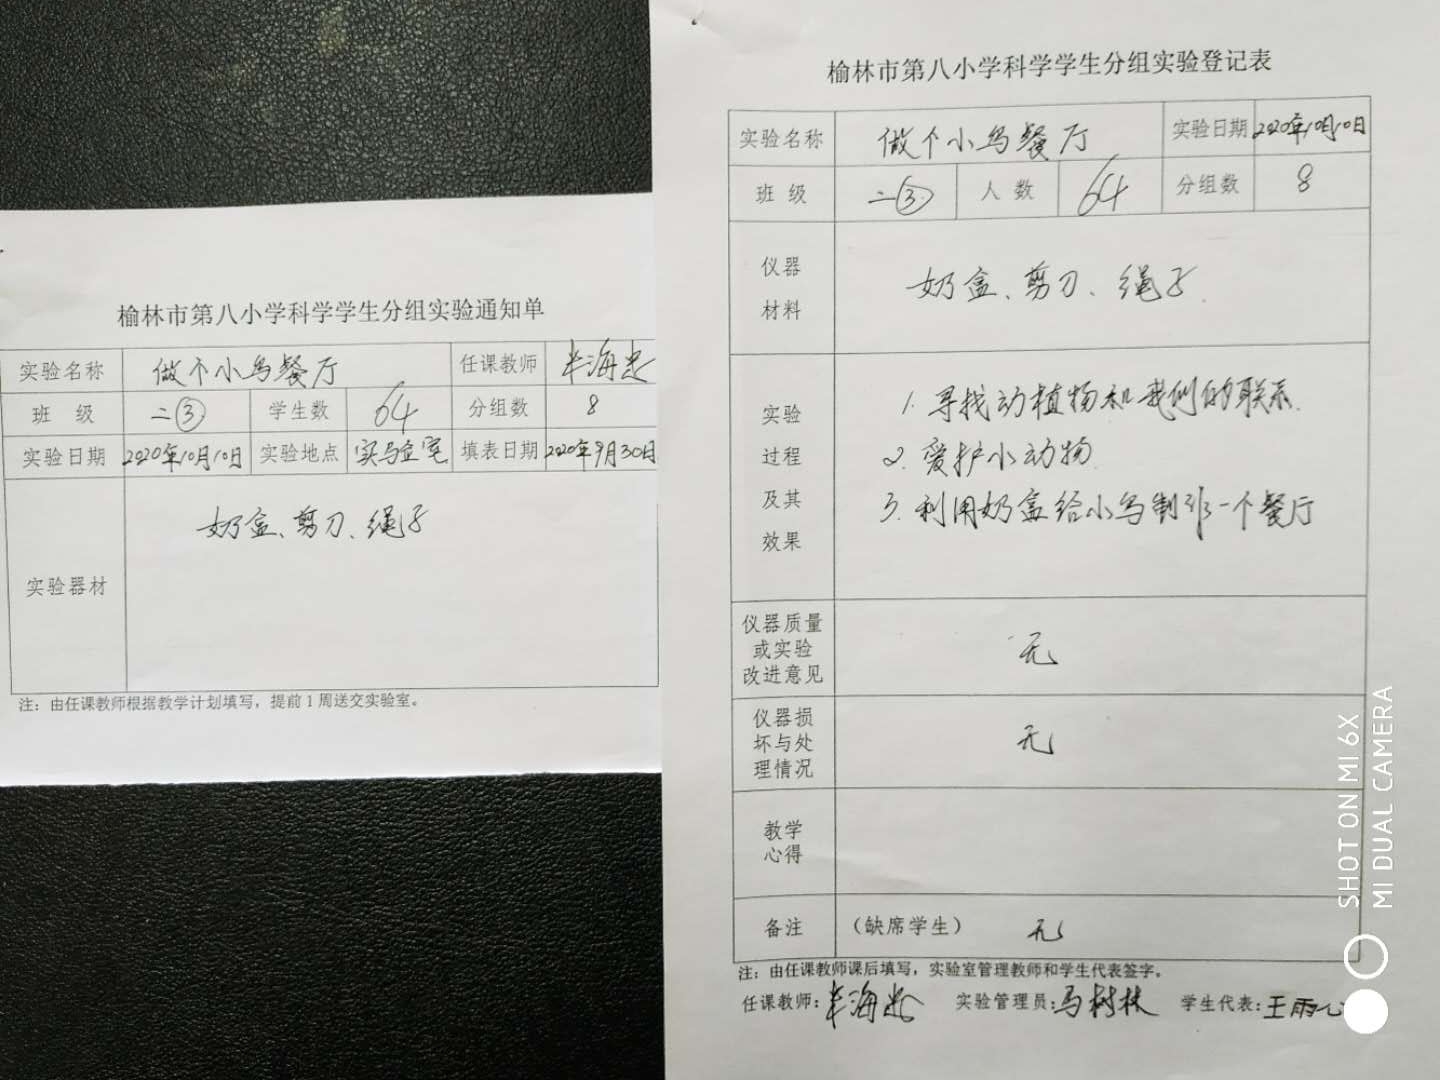 榆林市第八小学科学学生分组实验通知单
实验名称 做个小鸟餐厅 任课教师 海忠
班 级 二③ 学生数 64 分组数 8
实验日期 2020年10月10日 实验地点 实验室 填表日期 2020年9月30日
实验器材 奶盒、剪刀、绳子
注：由任课教师根据教学计划填写，提前1周送交实验室。
榆林市第八小学科学学生分组实验登记表
实验名称 做个小鸟餐厅 实验日期 2020年10月10日
班 级 二③ 人 数 64 分组数 8
仪器
材料
奶盒、剪刀、绳子.
实验
过程
及其
效果
1. 寻找动植物和我们的联系.
2. 爱护小动物.
3. 利用奶盒给小鸟制作一个餐厅
仪器质量
或实验
改进意见
无
仪器损
坏与处
理情况
无
教学
心得
备注 （缺席学生） 无
注：由任课教师课后填写，实验室管理教师和学生代表签字。
任课教师： 海忠 实验管理员：马树林 学生代表：王雨心
SHOT ON MI 6X
MI DUAL CAMERA